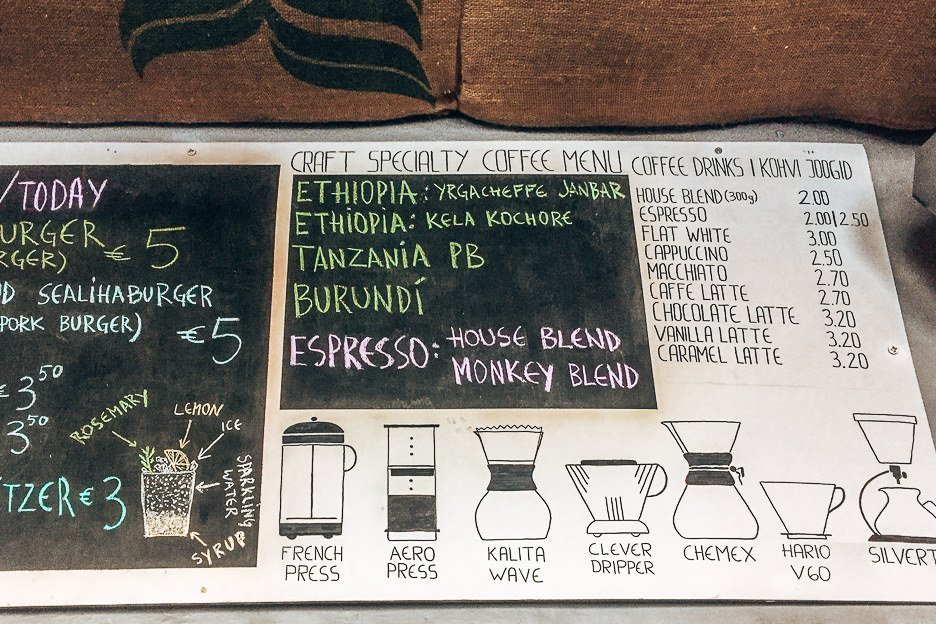 /TODAY
URGER
RGER) € 5
D SEALIHABURGER
PORK BURGER) € 5
€ 3 50
3 50
ROSEMARY
LEMON
ICE
SPARKLING
WATER
SYRUP
TZER € 3
CRAFT SPECIALTY COFFEE MENU
ETHIOPIA: YRGACHEFFE JANBAR
ETHIOPIA: KELA KOCHORE
TANZANIA PB
BURUNDI
ESPRESSO: HOUSE BLEND
MONKEY BLEND
COFFEE DRINKS | KOHVI JOOGID
HOUSE BLEND (300g) 2.00
ESPRESSO 2.00|2.50
FLAT WHITE 3.00
CAPPUCCINO 2.50
MACCHIATO 2.70
CAFFE LATTE 2.70
CHOCOLATE LATTE 3.20
VANILLA LATTE 3.20
CARAMEL LATTE 3.20
FRENCH
PRESS
AERO
PRESS
KALITA
WAVE
CLEVER
DRIPPER
CHEMEX
HARIO
V60
SILVERT